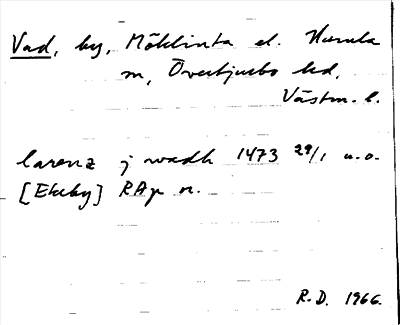 Vad, by, Möklinta el. Hurula
sn, Övertjurbo hd,
Västm. l.
larenz j wadh 1473 29/1 u.o.
[Ekeby] RAp or.
R.D. 1966.